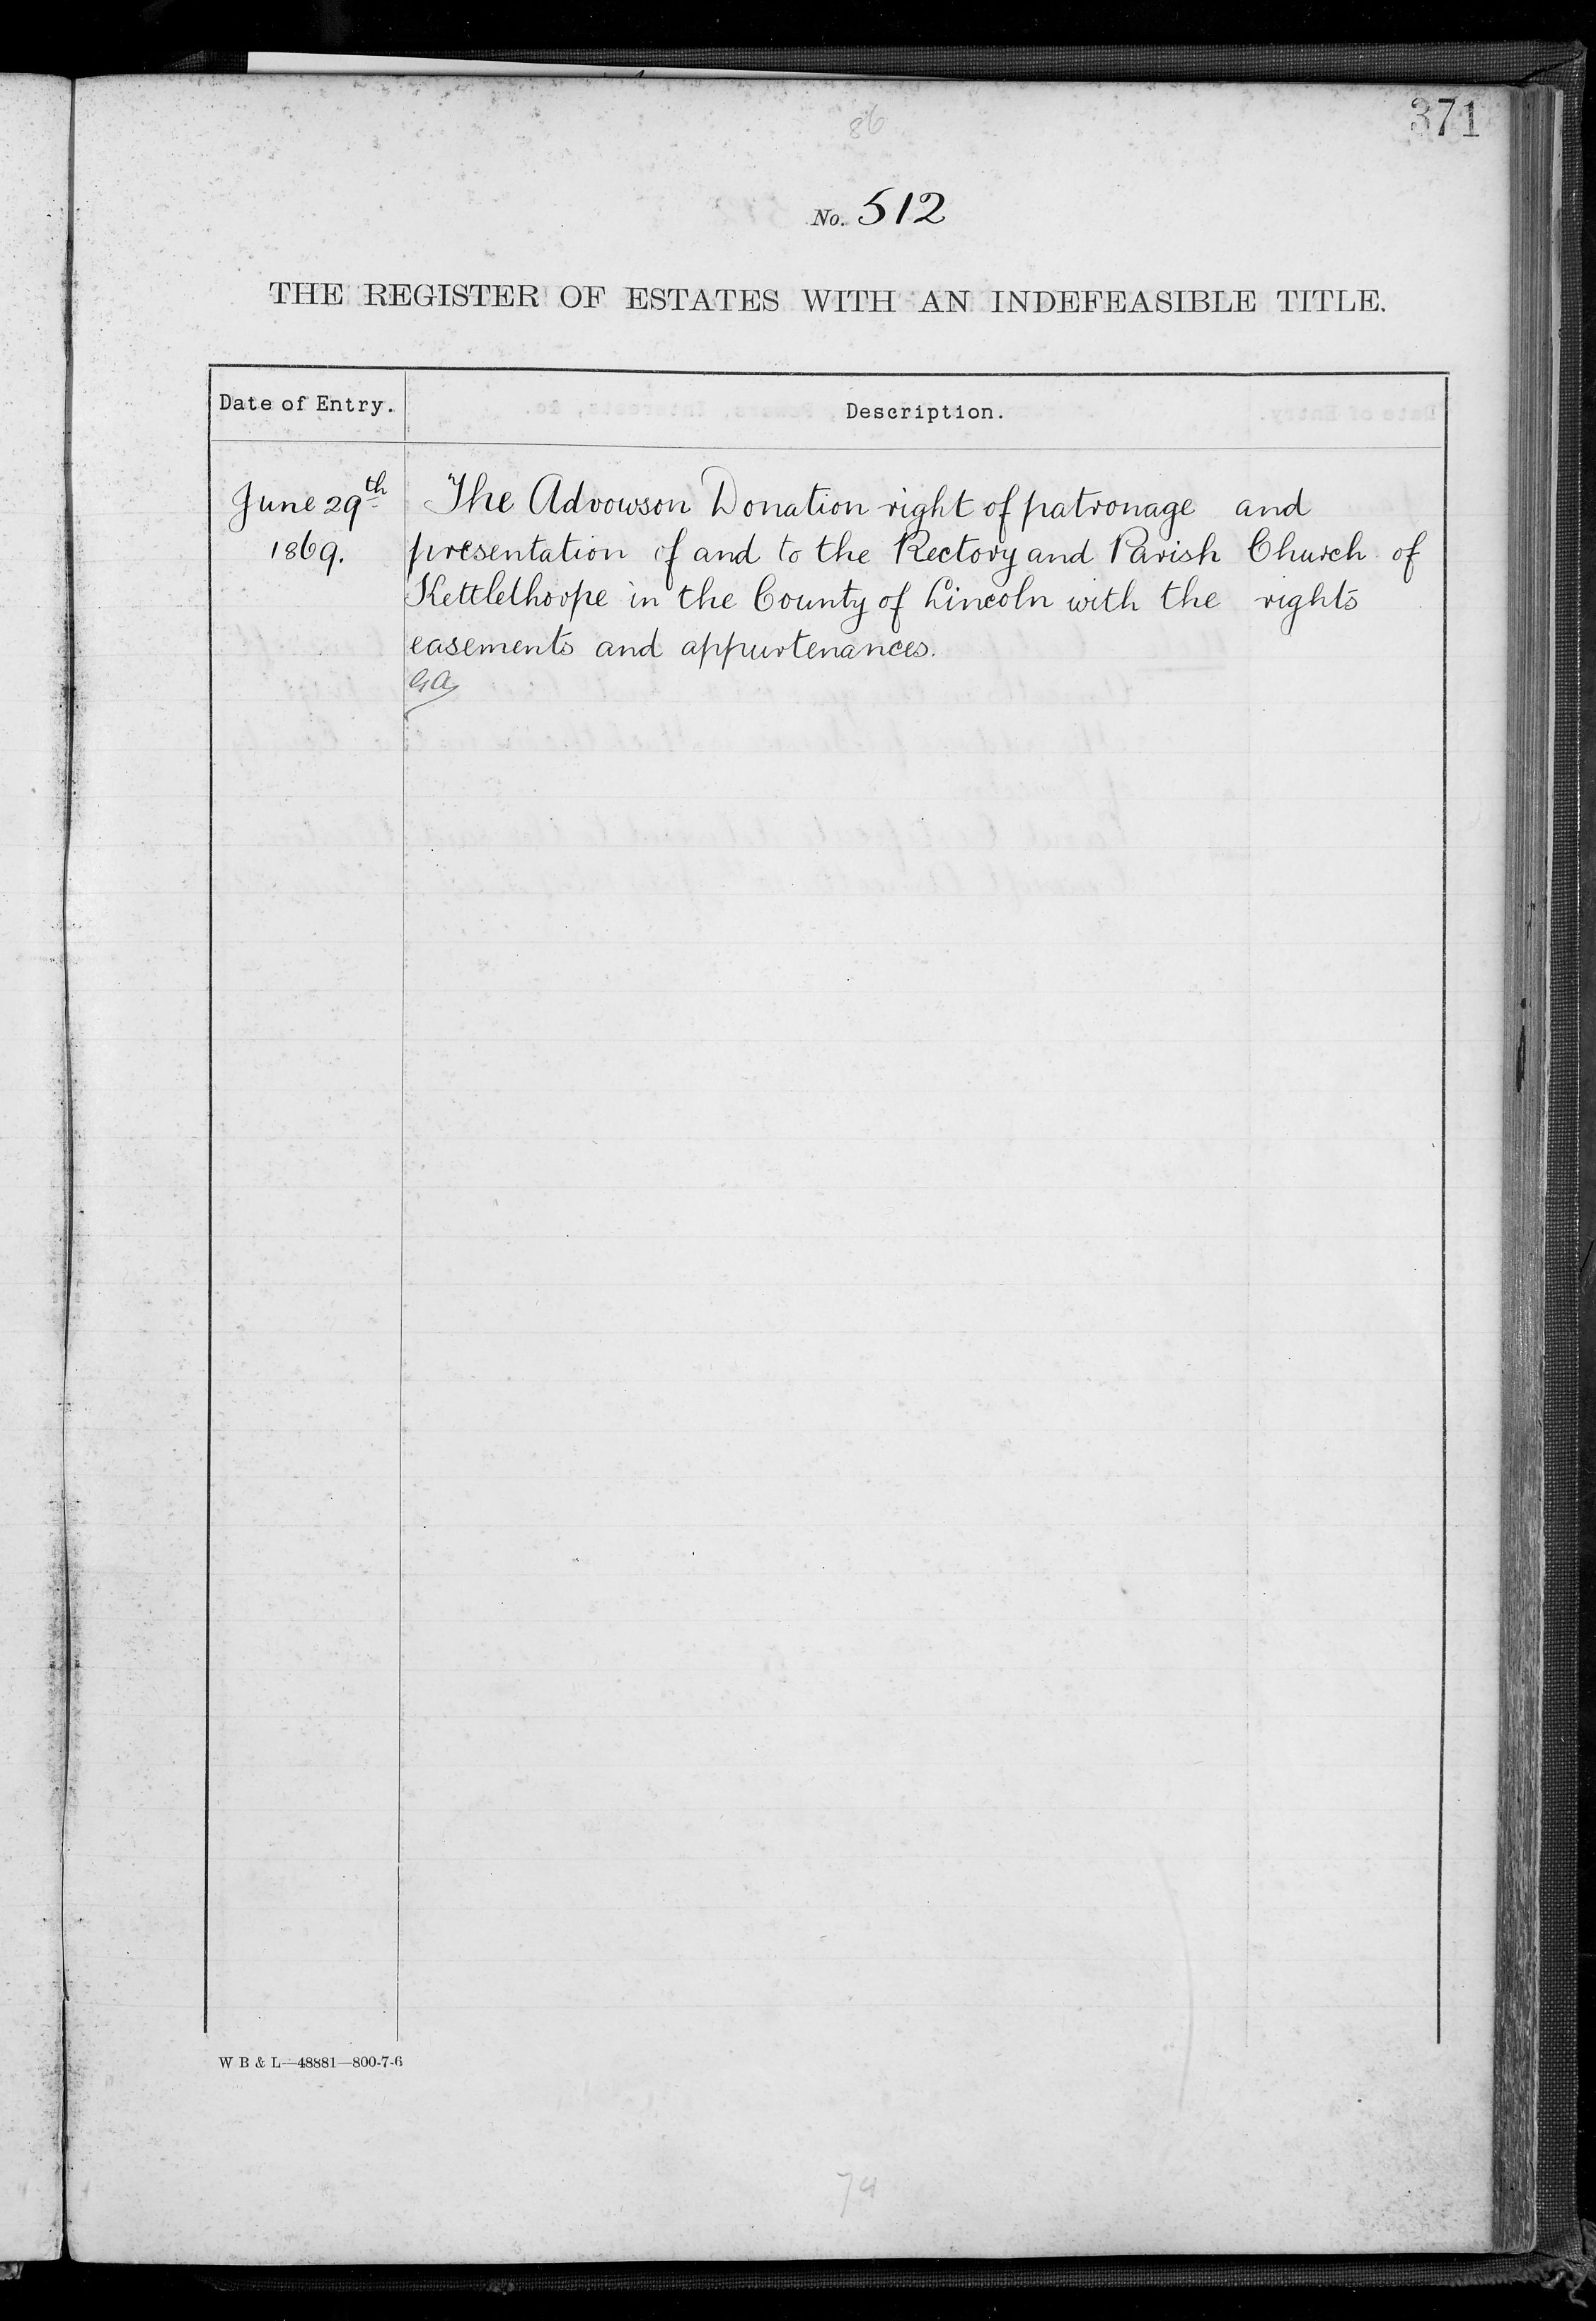 86
371
No. 512
THE REGISTER OF ESTATES WITH AN INDEFEASIBLE TITLE.
Date of Entry.
Description.
June 29th
1869.
The Advowson Donation right of patronage and
presentation of and to the Rectory and Parish Church of
Kettlethorpe in the County of Lincoln with the rights
easements and appurtenances.
W B & L—48881—800-7-6